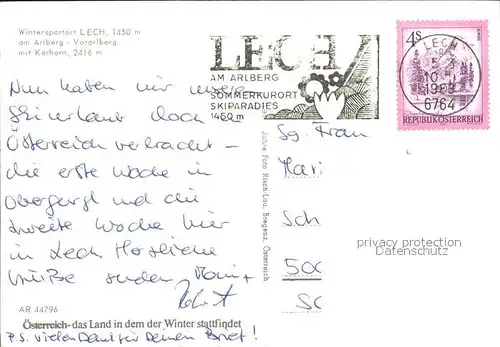 Wintersportort LECH, 1450 m
am Arlberg - Vorarlberg
mit Karhorn, 2416 m
LECH
AM ARLBERG
SOMMERKURORT
SKIPARADIES
1450 m
4S
LECH
10
1983
6764
REPUBLIK ÖSTERREICH
Nun haben wir unsere
Skiurlaub doch
Österreich verbracht -
die erste Woche in
Obergurgl und die
zweite Woche hier
in Lech Herzliche
Grüße senden
Sg. Frau
Mari
Sch
500
privacy protection
Datenschutz
Echte Foto Risch-Lau, Bregenz, Österreich
AR 44796
Österreich - das Land in dem der Winter stattfindet
P.S. Vielen Dank für Deinen Brief!